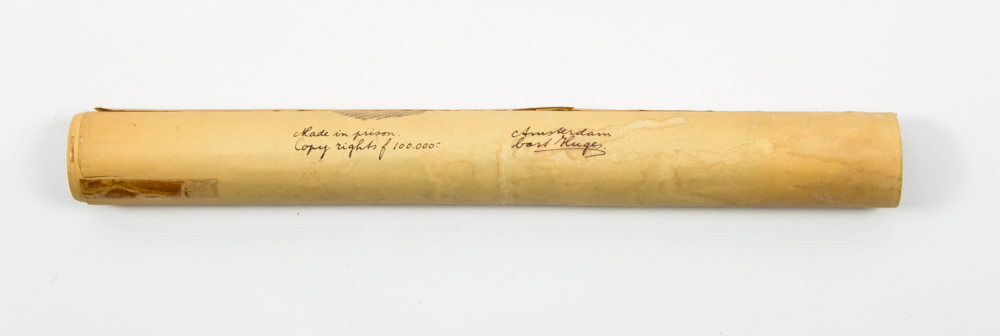 Made in prison.
Copy rights f 100.000:-
Amsterdam
bart Huges.